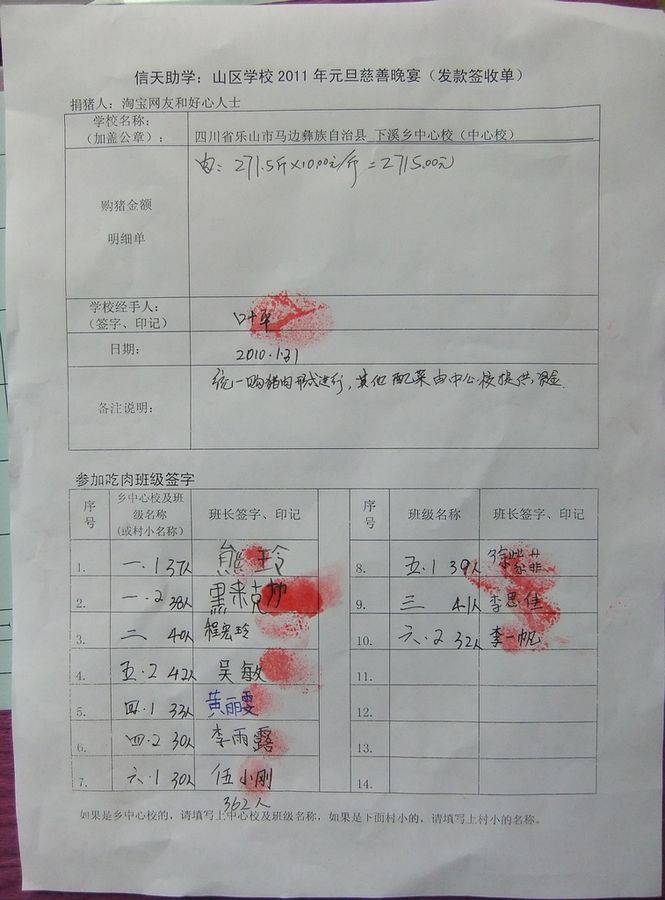 信天助学：山区学校2011年元旦慈善晚宴（发款签收单）
捐猪人：淘宝网友和好心人士
学校名称：
（加盖公章）：
四川省乐山市马边彝族自治县 下溪乡中心校（中心校）
购猪金额
明细单
肉：271.5斤×10.00元/斤＝2715.00元
学校经手人：
（签字、印记）
叶平
日期：
2010.1.31
备注说明：
统一购猪肉形式进行，其他配菜由中心校提供资金.
参加吃肉班级签字
序号 乡中心校及班级名称（或村小名称） 班长签字、印记 序号 班级名称 班长签字、印记
1. 一.1 37人 熊玲 8. 五.1 39人
2. 一.2 38人 黑来克 9. 三 41人 李思佳
3. 二 40人 程宏玲 10. 六.2 32人 李一帆
4. 五.2 42人 吴敏 11.
5. 四.1 33人 黄丽雯 12.
6. 四.2 30人 李雨露 13.
7. 六.1 30人 伍小刚 14.
362人
如果是乡中心校的，请填写上中心校及班级名称，如果是下面村小的，请填写上村小的名称。